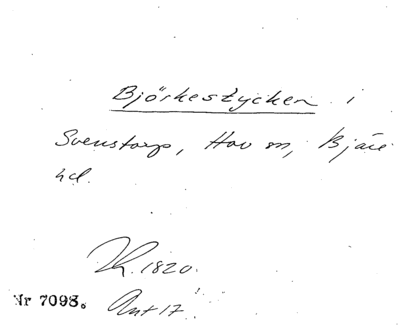 Björkestycken i
Svenstorp, Hov sn, Bjäre
hd.
Lh. 1820.
Nr 7098. Ant 17.